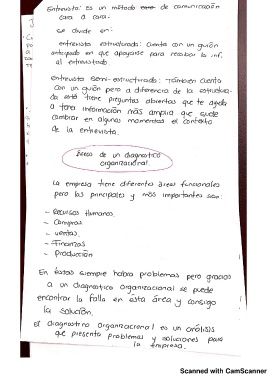 Entrevista: es un método de comunicación
cara a cara.
Se divide en:
entrevista estructurada: Cuenta con un guión
anticipado en que apoyarse para recabar la inf.
al entrevistado
Entrevista Semi-estructurada: También cuenta
con un guión pero a diferencia de la estructura-
da esta tiene preguntas abiertas que te ayuda
a tener información más amplia que puede
cambiar en algunos momentos el contexto
de la entrevista.
Áreas de un diagnostico
organizacional.
La empresa tiene diferentes áreas funcionales
pero las principales y más importantes son:
- Recursos Humanos.
- Compras
- Ventas.
- Finanzas
- Producción
En éstas siempre habrá problemas pero gracias
a un diagnostico organizacional se puede
encontrar la falla en esta área y consigo
la solución.
El diagnostico organizacional es un análisis
que presenta problemas y soluciones para
la empresa.
Scanned with CamScanner